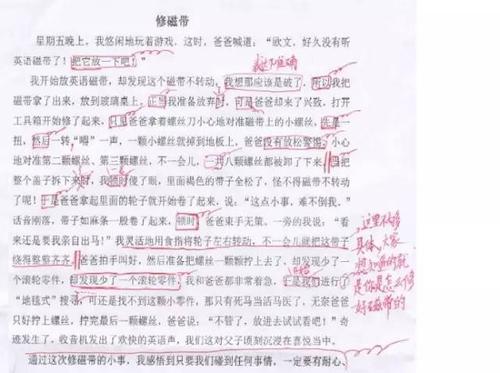 修磁带
星期五晚上，我悠闲地玩着游戏，这时，爸爸喊道：“欣文，好久没有听
英语磁带了！把它放一下吧！”
我开始放英语磁带，却发现这个磁带不转动，我想那应该是破了，所以我把
磁带拿了出来，放到玻璃桌上，正当我准备放弃时，可是爸爸却来了兴致，打开
工具箱开始修了起来，只见爸爸拿着螺丝刀小心地对准磁带上的小螺丝，
扭，然后一转，“嘣”一声，一颗小螺丝就掉到地板上，爸爸没有放松警惕，小心
地对准第二颗螺丝、第三颗螺丝，不一会儿，一共八颗螺丝都被卸了下来，把
整个盖子拆下来时，我顿时傻了眼，里面褐色的带子全松了，怪不得磁带不转动
了呢！于是爸爸拿起里面的轮子就开始卷了起来，说：“这点小事，难不倒我。”
话音刚落，带子如麻条一般卷了起来，顿时，爸爸束手无策。一旁的我说：“看
来还是要我亲自出马！”我灵活地用食指将轮子左右转动，不一会儿就把这带子
绕得整整齐齐。爸爸拍手叫好，然后准备把螺丝一颗颗拧上去了，却发现少了一
个滚轮零件，却发现少了一个滚轮零件，我和爸爸都非常着急，于是我们进行了
“地毯式”搜寻，可还是找不到这颗小零件，那只有死马当活马医了，无奈爸爸
只好拧上螺丝，拧完最后一颗螺丝，爸爸说：“不管了，放进去试试看吧！”奇
迹发生了，收音机发出了欢快的英语声，我们这对父子顷刻沉浸在喜悦当中。
通过这次修磁带的小事，我感悟到只要我们碰到任何事情，一定要有耐心、
这里不够
具体，大家
想知道的就
是你是怎么修
好磁带的